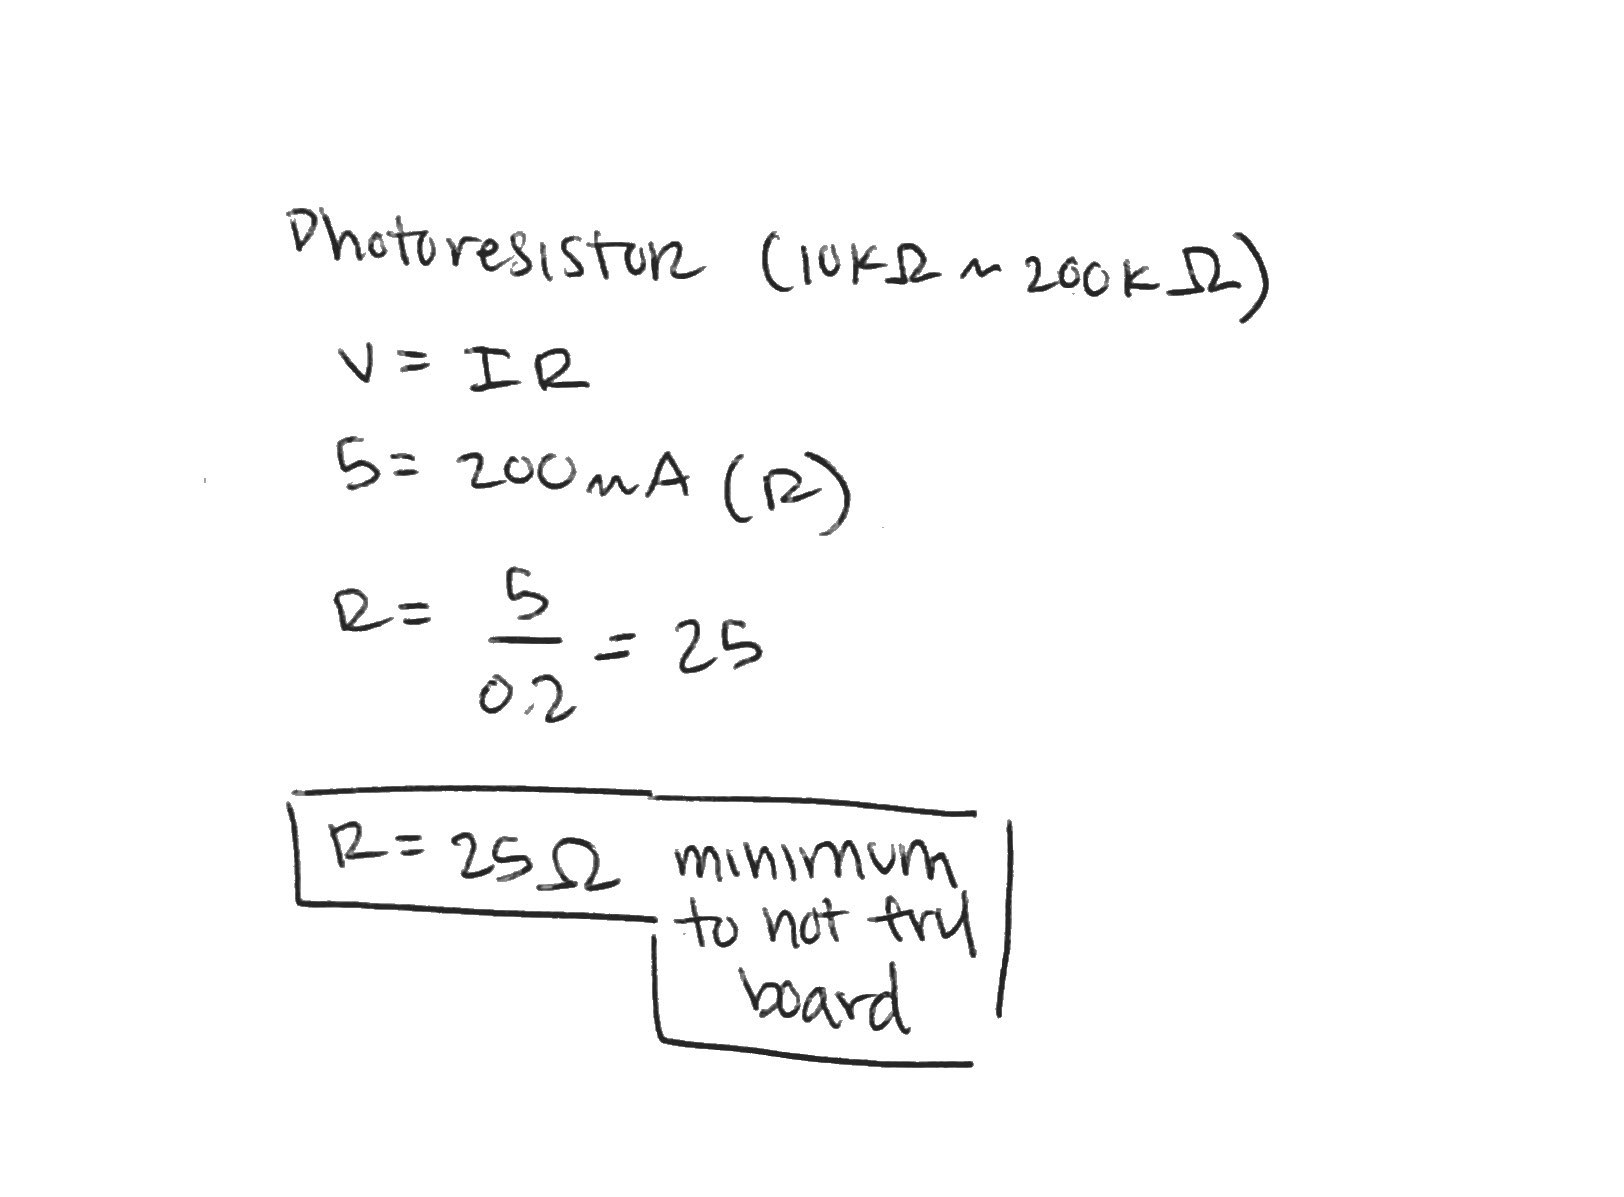 Photoresistor (10kΩ ~ 200kΩ)
V = IR
5 = 200mA (R)
R = 5/0.2 = 25
R = 25Ω minimum
to not fry
board